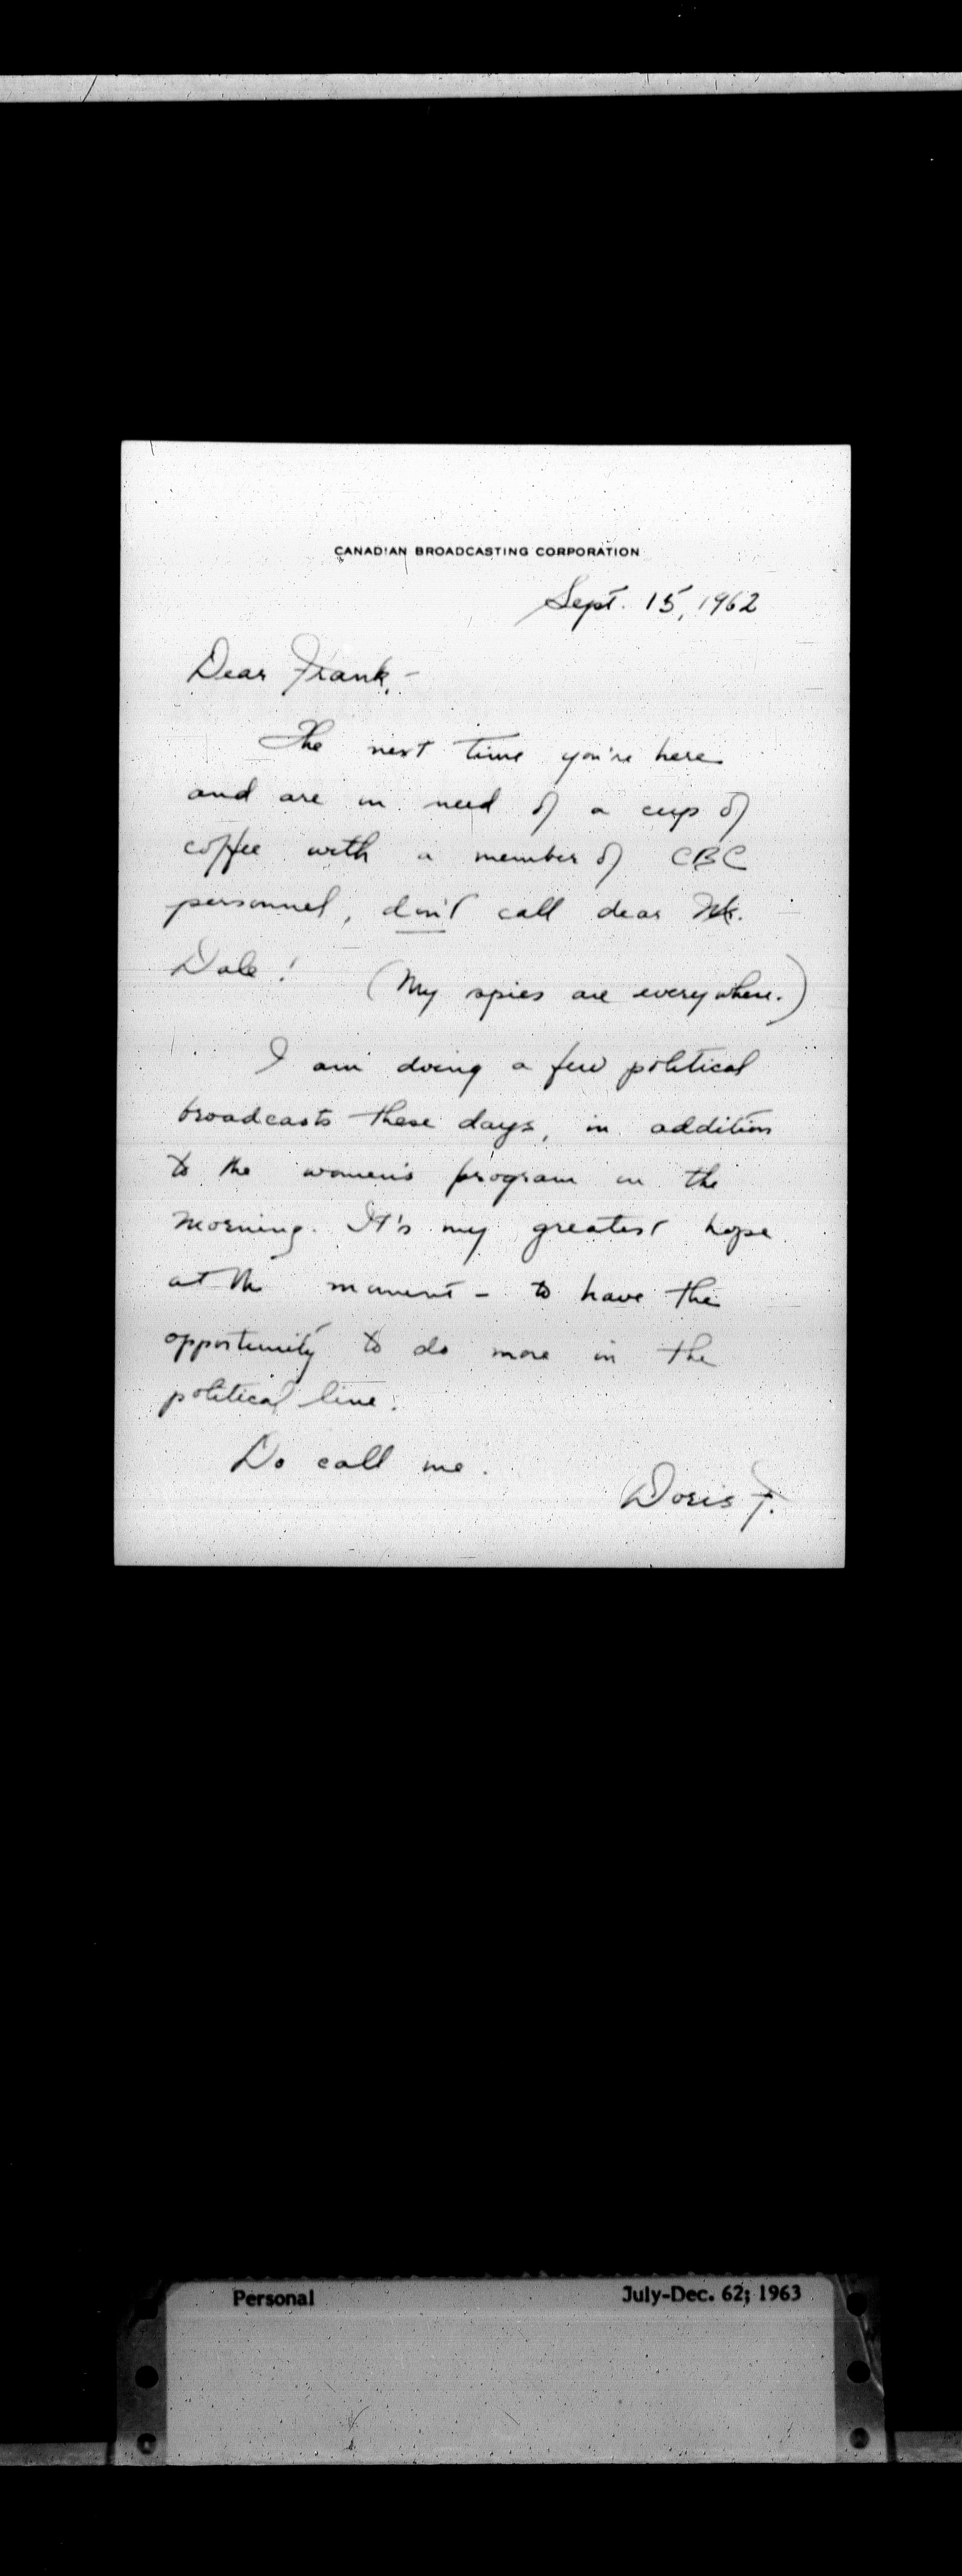 CANADIAN BROADCASTING CORPORATION
Sept. 15, 1962
Dear Frank,-
The next time you're here
and are in need of a cup of
coffee with a member of CBC
personnel, don't call dear Mr.
Dale! (My spies are everywhere.)
I am doing a few political
broadcasts these days, in addition
to the women's program in the
morning. It's my greatest hope
at the moment - to have the
opportunity to do more in the
political line.
Do call me.
Doris F.
Personal July-Dec. 62; 1963